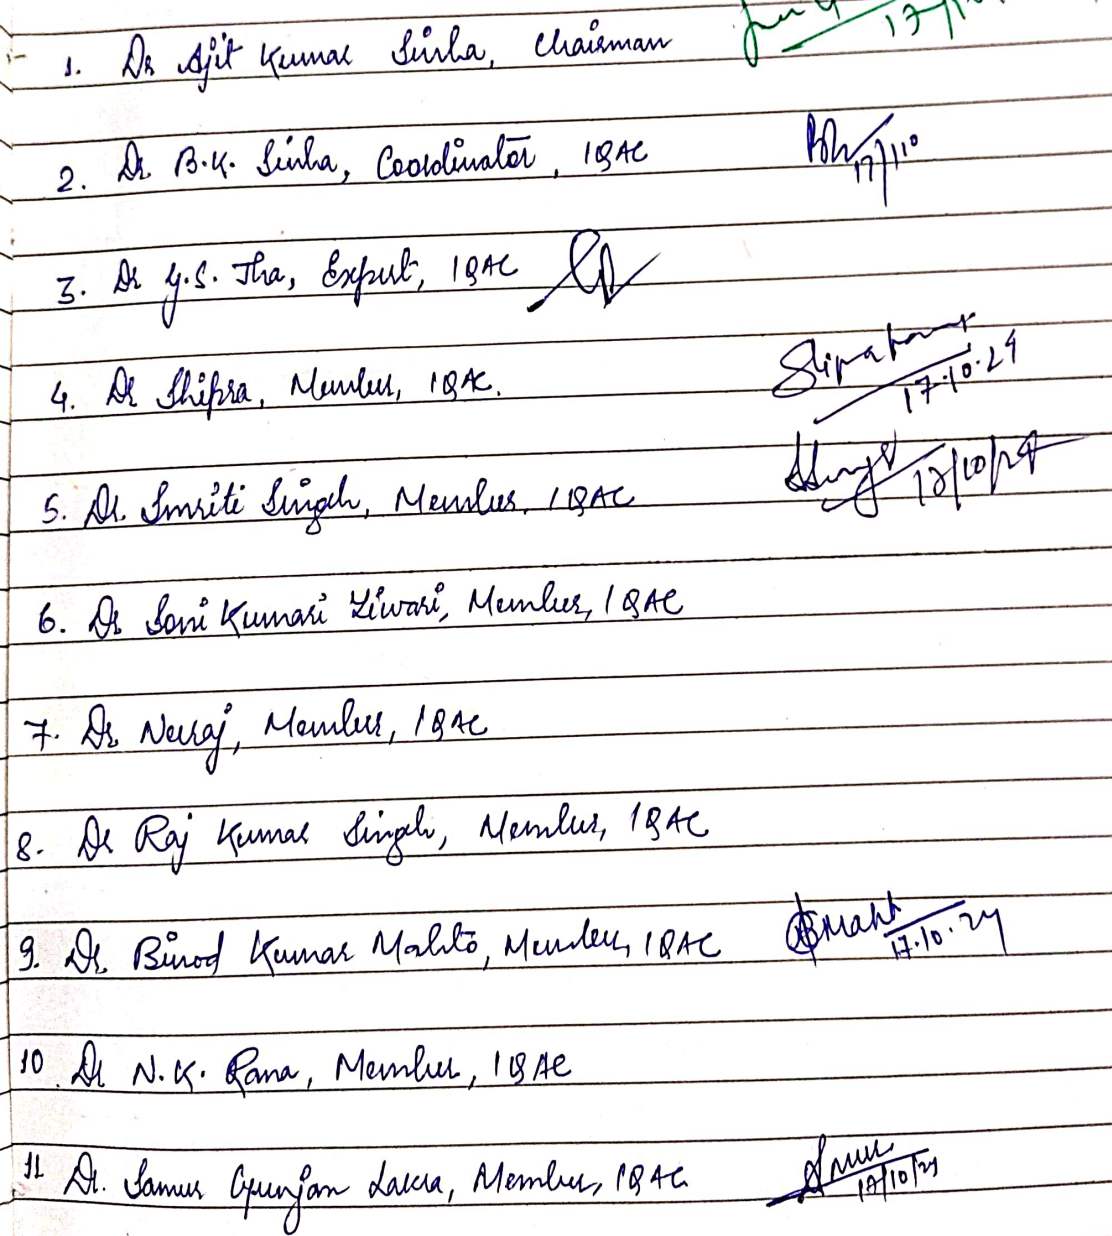 1. Dr Ajit Kumar Sinha, Chairman
2. Dr B.K. Sinha, Coordinator, IQAC 17/10
3. Dr Y.S. Jha, Expert, IQAC
4. Dr Shipra, Member, IQAC. 17.10.24
5. Dr. Smriti Singh, Member, IQAC 17/10/24
6. Dr Soni Kumari Tiwari, Member, IQAC
7. Dr Neeraj, Member, IQAC
8. Dr Raj Kumar Singh, Member, IQAC
9. Dr Binod Kumar Mahto, Member, IQAC 17.10.24
10. Dr N.K. Rana, Member, IQAC
11 Dr. Gunjan Lakra, Member, IQAC 17/10/24